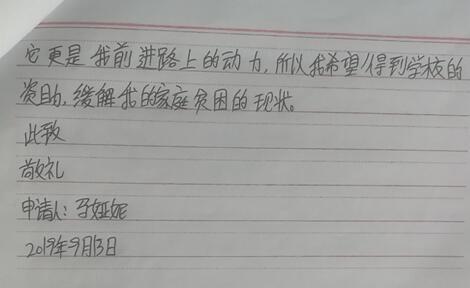 它更是我前进路上的动力,所以我希望得到学校的
资助,缓解我的家庭贫困的现状。
此致
敬礼
申请人:娅妮
2019年9月13日